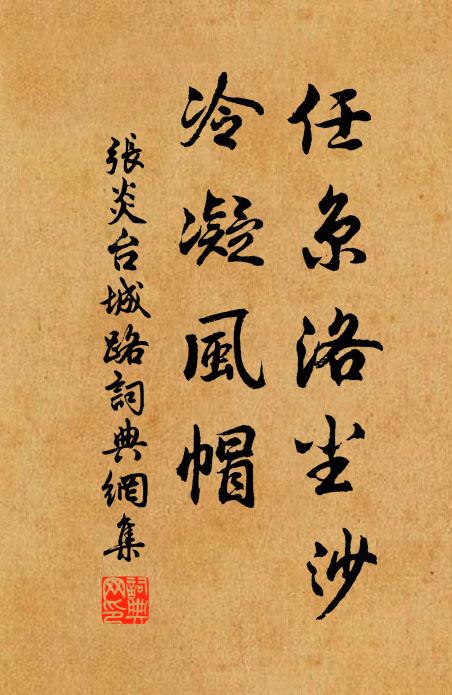 任京洛尘沙
冷凝風帽
張炎台城路詞典網集
詞典网印